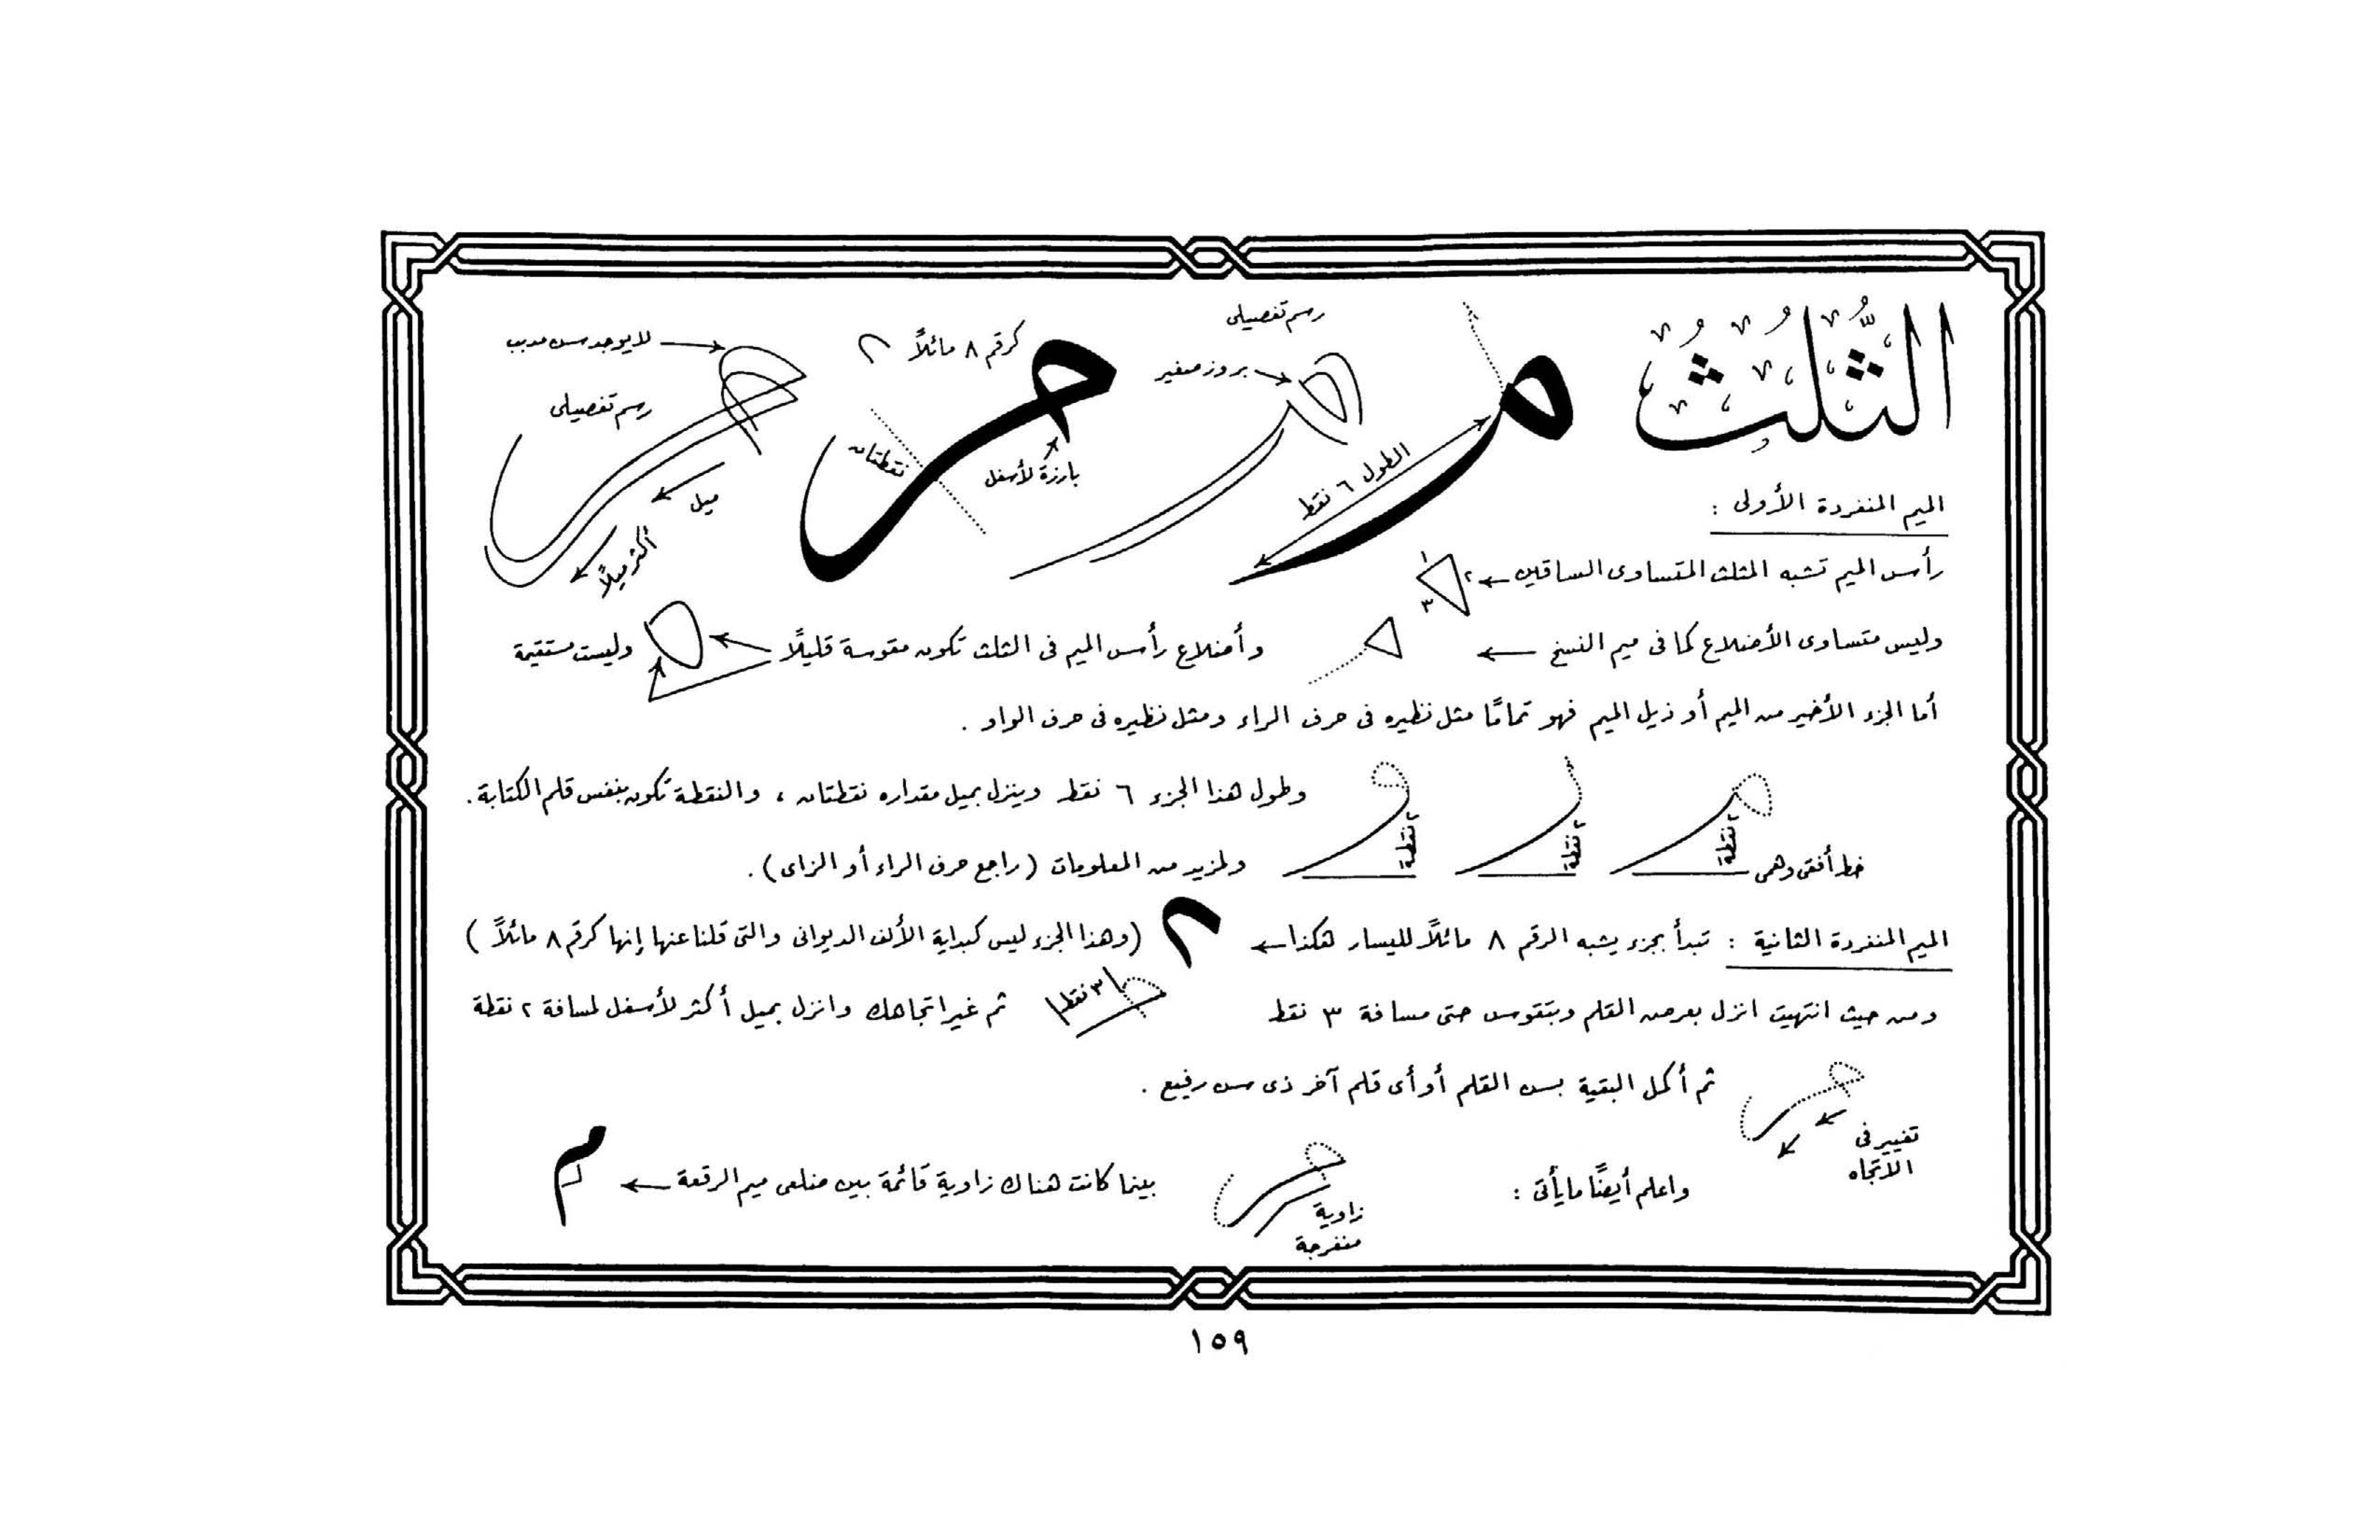 الثُّلُثُ
رسم تفصيلى
بروز صغير
الطول ٦ نقط
كرقم ٨ مائلاً
نقطتان
بارزة لأسفل
لا يوجد سن مدبب
رسم تفصيلى
ميل
أكثر ميلاً
الميم المنفردة الأولى :
رأس الميم تشبه المثلث المتساوى الساقين ← ١ ٢ ٣
وليس متساوى الأضلاع كما فى ميم النسخ ← وأضلاع رأس الميم فى الثلث تكون مقوسة قليلاً وليست مستقيمة
أما الجزء الأخير من الميم أو ذيل الميم فهو تمامًا مثل نظيره فى حرف الراء ومثل نظيره فى حرف الواو .
وطول هذا الجزء ٦ نقط وينزل بميل مقداره نقطتان ، والنقطة تكون بنفس قلم الكتابة .
خط أفقى وهمى ٢ نقطة ٢ نقطة ٢ نقطة ولمزيد من المعلومات (راجع حرف الراء أو الزاى) .
الميم المنفردة الثانية : تبدأ بجزء يشبه الرقم ٨ مائلاً لليسار هكذا ← (وهذا الجزء ليس كبداية الألف الديوانى والتى قلنا عنها إنها كرقم ٨ مائلاً )
ومن حيث انتهيت انزل بعرض القلم وبتقوس حتى مسافة ٣ نقط ٣ نقط ثم غير اتجاهك وانزل بميل أكثر لأسفل لمسافة ٢ نقطة
تغيير فى
الاتجاه
ثم أكمل البقية بسن القلم أو أى قلم آخر ذى سن رفيع .
واعلم أيضًا ما يأتى :
زاوية
منفرجة
بينما كانت هناك زاوية قائمة بين ضلعى ميم الرقعة ←
١٥٩